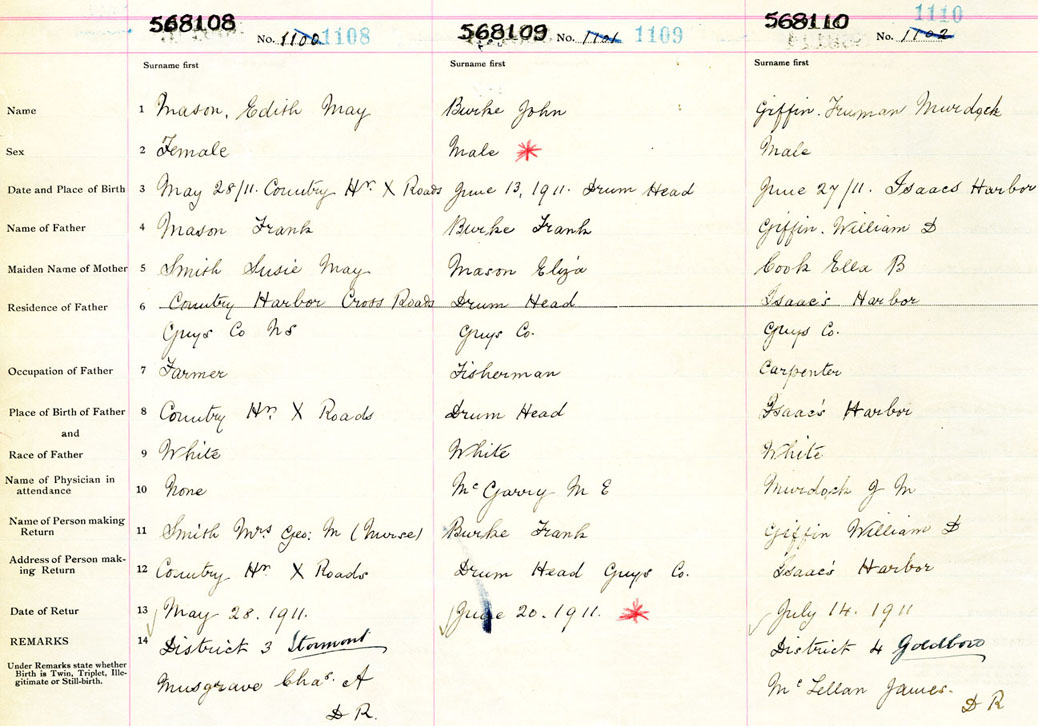 568108 No. 1100 1108
568109 No. 1101 1109
568110 No. 1102 1110
Surname first Surname first Surname first
Name 1 Mason, Edith May Burke John Giffin. Truman Murdock
Sex 2 Female Male Male
Date and Place of Birth 3 May 28/11. Country Hr. X Roads June 13, 1911. Drum Head June 27/11. Isaacs Harbor
Name of Father 4 Mason Frank Burke Frank Giffin. William D
Maiden Name of Mother 5 Smith Susie May Mason Eliza Cook Ella B
Residence of Father 6 Country Harbor Cross Roads Drum Head Isaac's Harbor
Guys Co NS Guys Co. Guys Co.
Occupation of Father 7 Farmer Fisherman Carpenter
Place of Birth of Father 8 Country Hr. X Roads Drum Head Isaac's Harbor
and
Race of Father 9 White White White
Name of Physician in attendance 10 None Mc Garry M E Murdock J M
Name of Person making Return 11 Smith Mrs Geo: M (Nurse) Burke Frank Giffin William D
Address of Person mak-ing Return 12 Country Hr. X Roads Drum Head Guys Co. Isaac's Harbor
Date of Retur 13 May 28. 1911. June 20. 1911. July 14. 1911
REMARKS 14 District 3 Stormont District 4 Goldboro
Under Remarks state whether Birth is Twin, Triplet, Ille-gitimate or Still-birth.
Musgrave Chas. A Mc Lellan James.
D R. D R